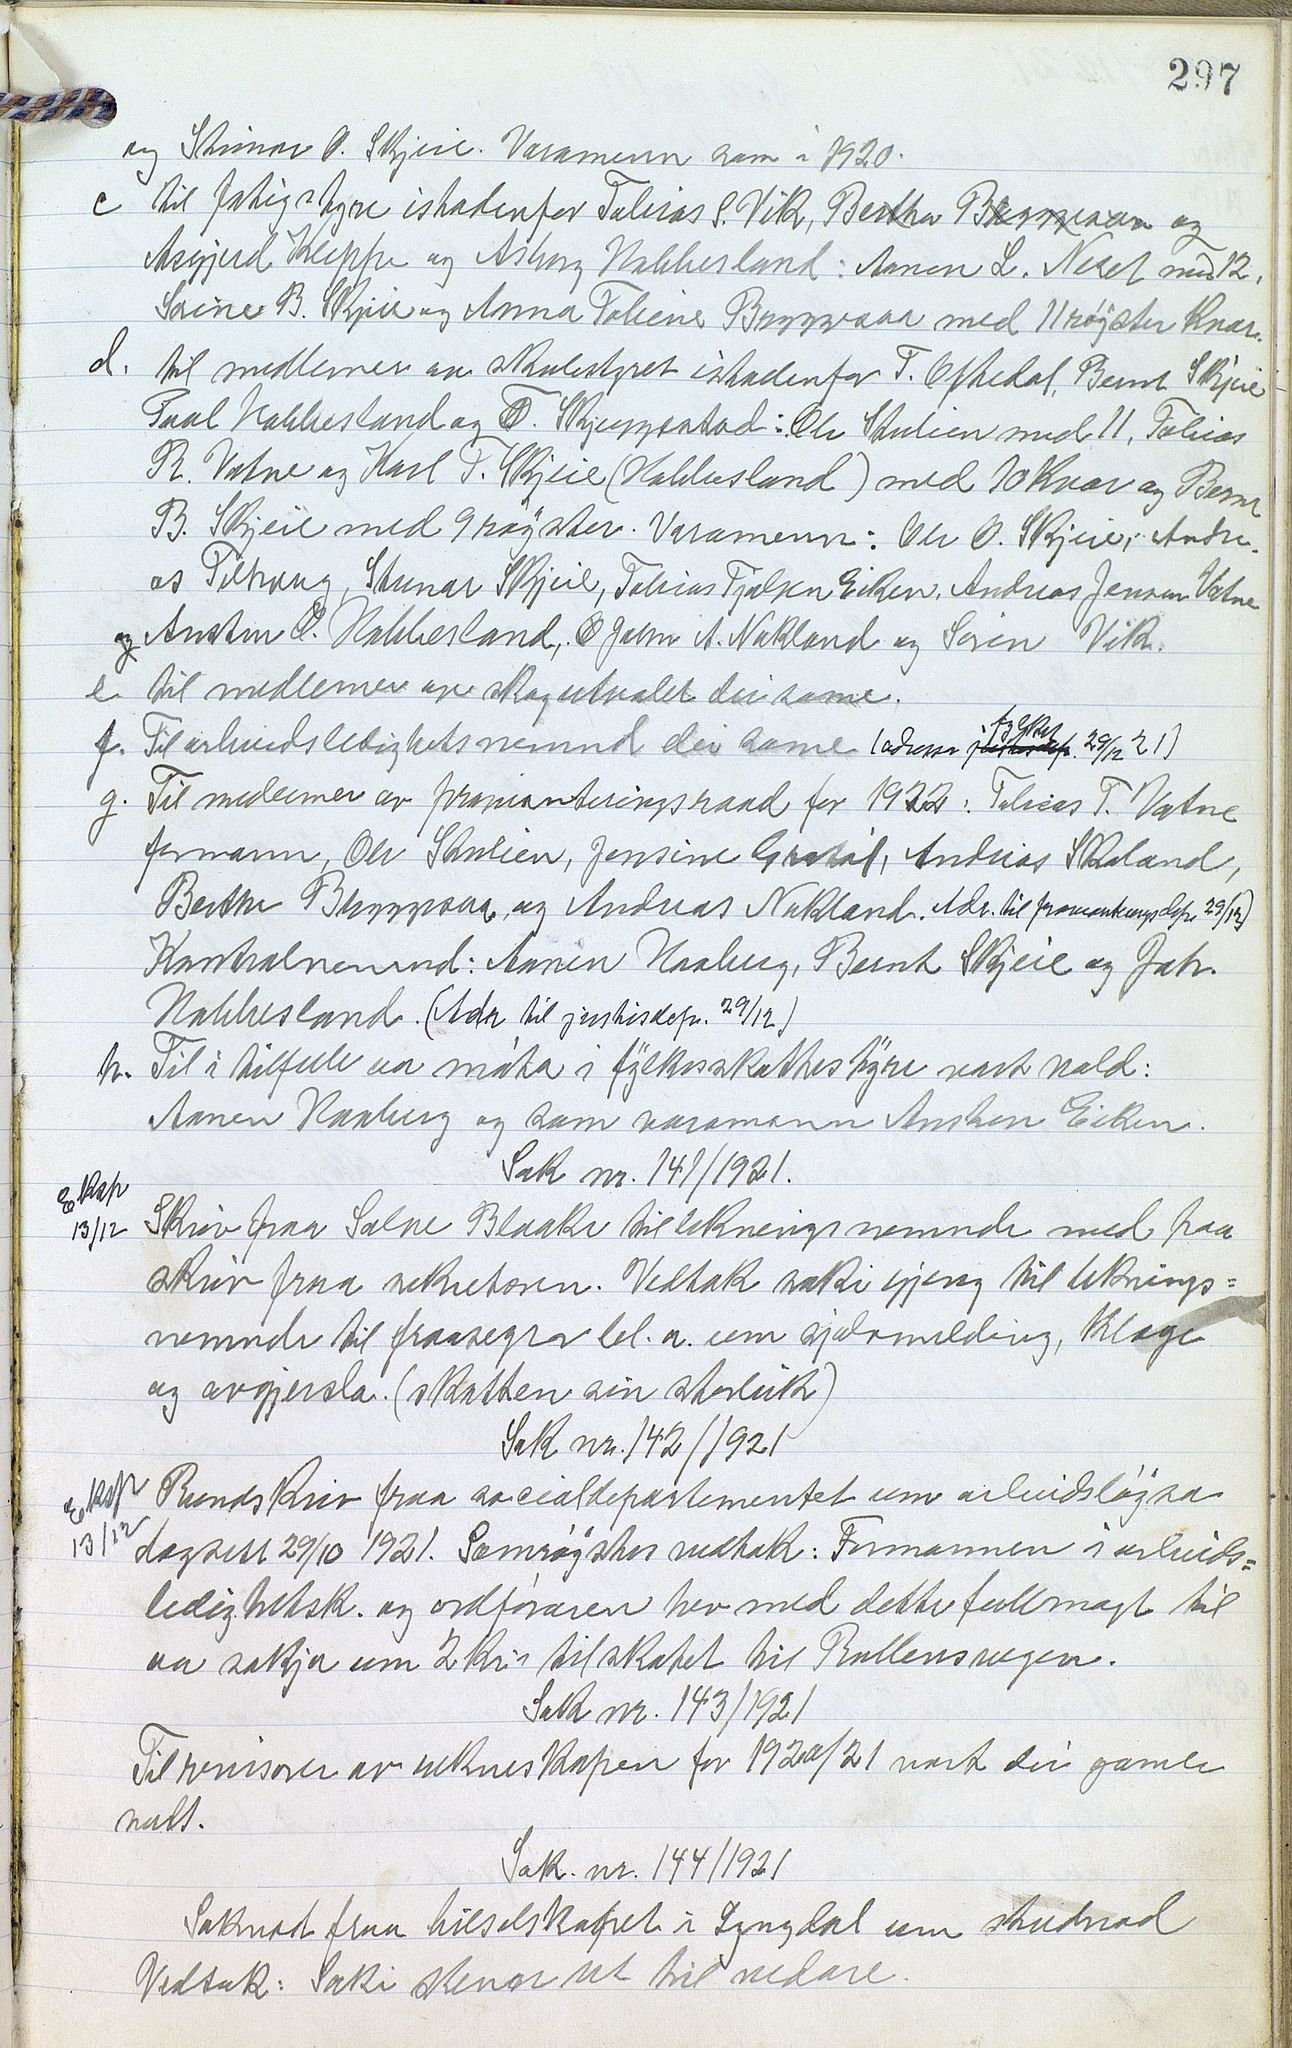 297
og Steinar O. Skjeie. Varamenn som i 1920.
c til fatigstyre istadenfor Tobias S. Vik, Bertha Bryggesaa og
Asgjerd Kleppe og Asborg Habbesland: Aanen L. Neset med 12,
Serine B. Skjeie og Anna Toliene Bryggesaa med 11 røyster kvar.
d. til medlemer av skulestyret istadenfor T. Oftedal, Bernt Skjeie
Paal Habbesland og T. Skjeggestad: Ole Skulien med 11, Tobias
R. Vatne og Karl T. Skjeie (Habbesland) med 10 kvar og Bernt
B. Skjeie med 9 røyster. Varamenn: Ole O. Skjeie, Andre-
as Tveithaug, Steinar Skjeie, Tobias Fjalsen Eiken, Andreas Jensen Vatne
og Austen O. Habbesland, John A. Nakland og Søren Vik.
e til medlemer av skogutvalet dei same.
f. Til arbeidsledighetsnemnd dei same (adresse fylket 29/12 21)
g. Til medlemer av provianteringsraad for 1922: Tobias T. Vatne
formann, Ole Skulien, Jensine Grastøl, Andreas Skeland,
Berthe Bryggesaa, og Andreas Nakland. Adr. til provianteringsdep. 29/12)
Kontrolnemnd: Aanen Haaberg, Bernt Skjeie og Jak.
Habbesland. (Adr til justisdep. 29/12)
h. Til i tilfelle aa møta i fylkesskattestyre vart vald:
Aanen Haaberg og som varamann Austen Eiken.
Sak nr. 141/1921.
Eksp
13/12
Skriv fraa Salve Blaake til likningsnemnde med paa
skriv fraa sekretæren. Vedtak saki gjeng til liknings=
nemnde til fraasegn bl. a. um sjølvmelding, klage
og avgjersla. (skatten sin storleik)
Sak nr. 142/1921
Eksp
13/12
Rundskriv fraa socialdepartementet um arbeidsløysa
dagsett 29/10 1921. Samrøystes vedtak: Formannen i arbeids=
ledighetsk. og ordføraren hev med dette fullmagt til
aa søkja um 2 kr's tilskotet til Rullensvegen.
Sak nr. 143/1921
Til revisorer av rekneskapen for 1920/21 vart dei gamle
valt.
Sak. nr. 144/1921
Søknad fraa hilselskapet i Lyngdal um studnad
Vedtak: Saki stend ut til vidare.